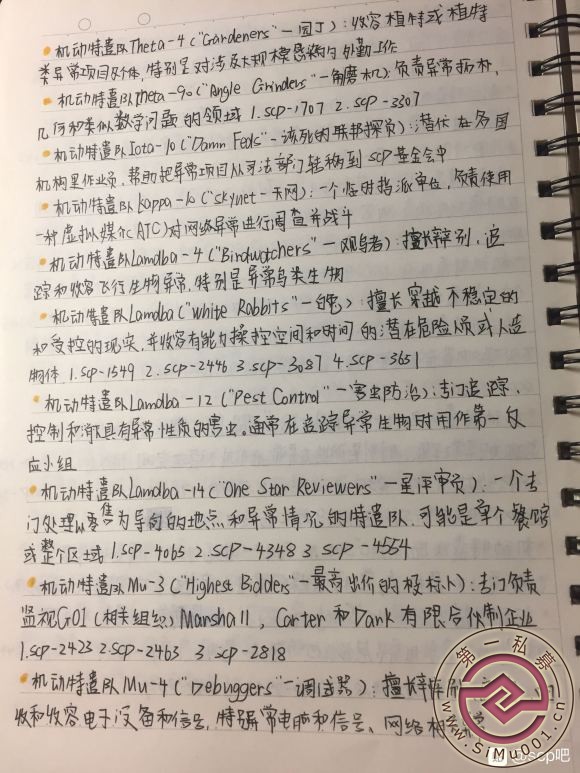 • 机动特遣队Theta-4("Gardeners"-园丁):收容植物或植物
类异常项目及个体,特别是对涉及大规模感染的外勤工作
• 机动特遣队Theta-90("Angle Grinders"-角磨机):负责异常拓朴,
几何和类似数学问题的领域 1.scp-1707 2.scp-3307
• 机动特遣队Iota-10("Damn Feds"-该死的联邦探员):潜伏在各国
机构里作业员,帮助把异常项目从司法部门转移到scp基金会中
• 机动特遣队kappa-10("skynet-天网):一个临时指派单位,负责使用
一种虚拟媒介(AIC)对网络异常进行调查并战斗
• 机动特遣队Lamdba-4("Birdwatchers"-观鸟者):擅长辨别,追
踪和收容飞行生物异常,特别是异常鸟类生物
• 机动特遣队Lamdba("white Rabbits"-白兔):擅长穿越不稳定的
和受控的现实,并收容有能力操控空间和时间的潜在危险人员或人造
物体 1.scp-1549 2.scp-2446 3.scp-3087 4.scp-3651
• 机动特遣队Lamdba-12("Pest Control"-害虫防治):专门追踪,
控制和消灭具有异常性质的害虫。通常在追踪异常生物时用作第一反
应小组
• 机动特遣队Lamdba-14("One Star Reviewers"-一星评审员):一个专
门处理以零售为导向的地点和异常情况的特遣队,可能是单个餐馆
或整个区域 1.scp-4065 2.scp-4348 3.scp-4554
• 机动特遣队Mu-3("Highest Bidders"-最高出价的投标人):专门负责
监视GOI(相关组织)Marshall,Carter和Dark有限合伙制企业
1.scp-2423 2.scp-2463 3.scp-2818
• 机动特遣队Mu-4("Debuggers"-调试器):擅长
收和收容电子设备和信号,特别异常电脑和信号、网络
第一私募
www.SiMu001.cn
@scp吧